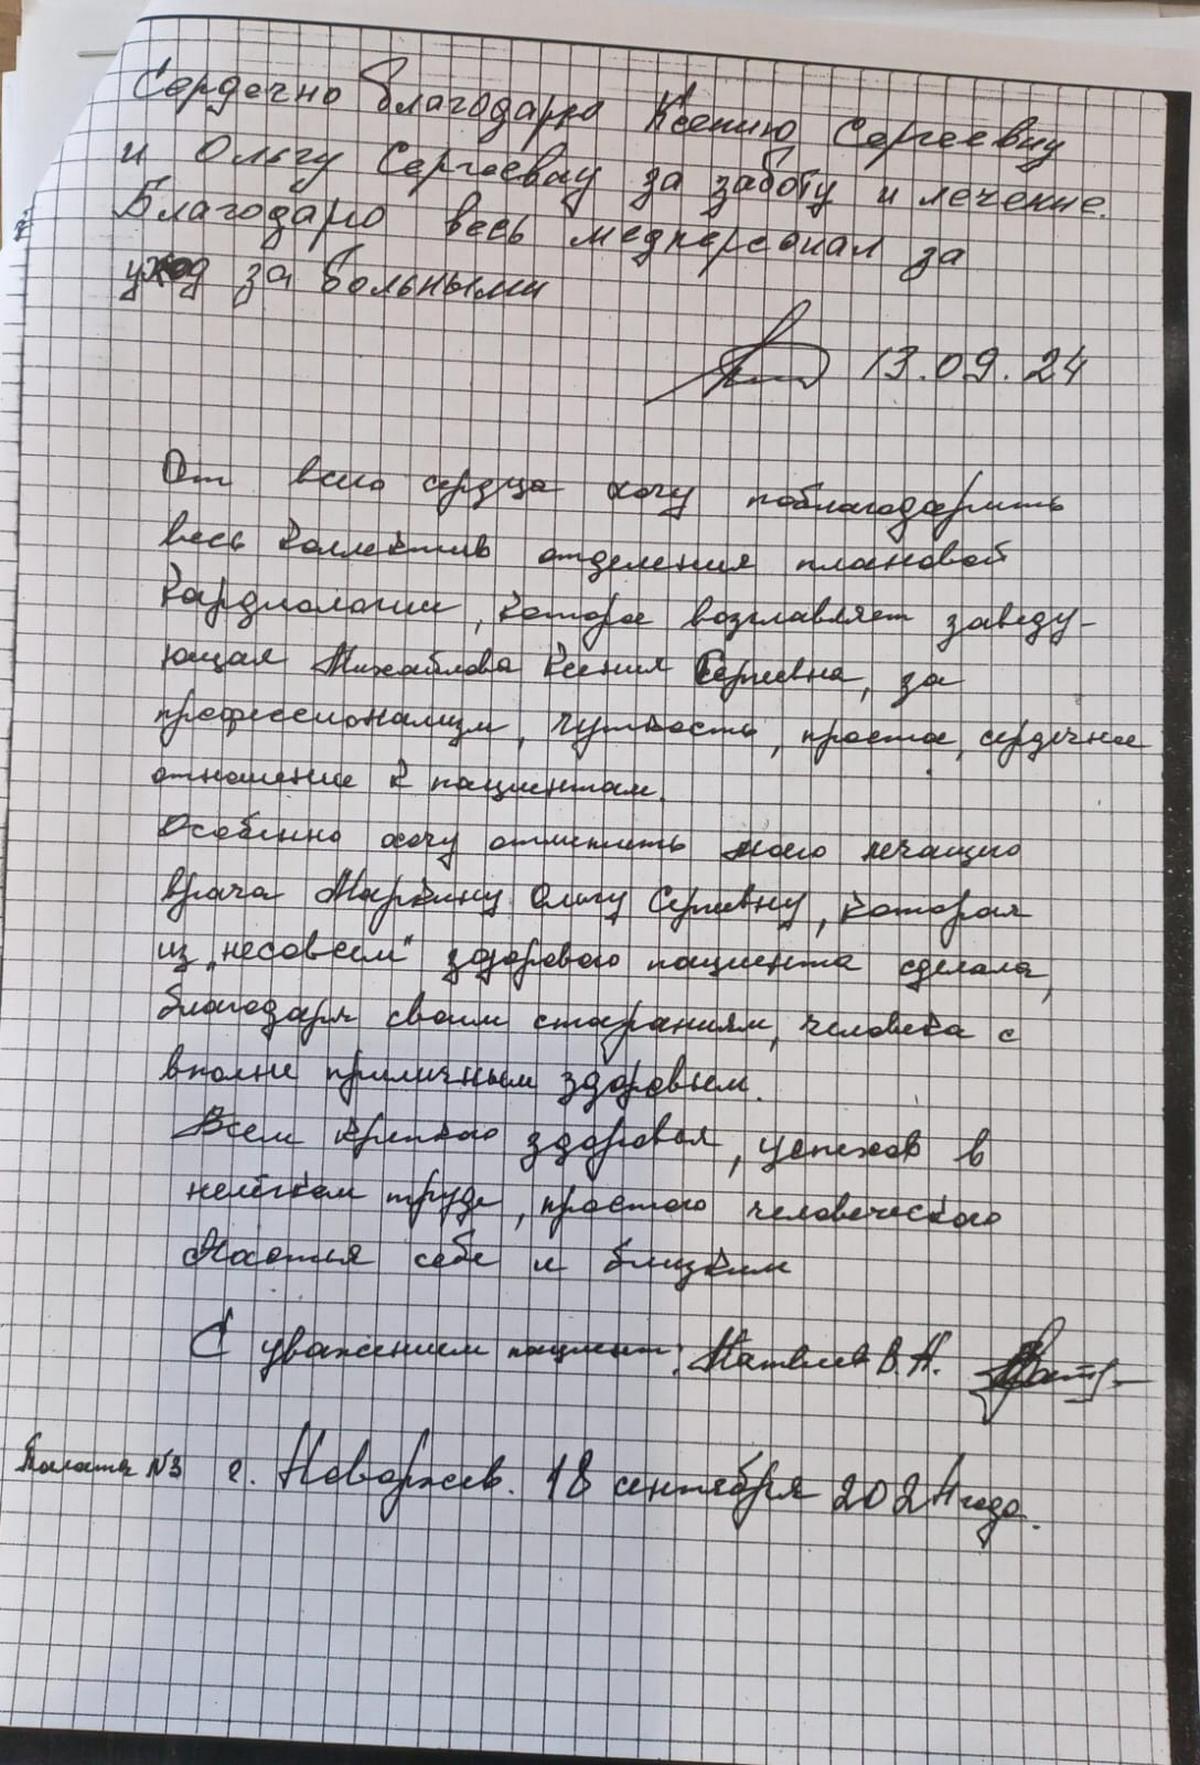 Сердечно благодарю Ксению Сергеевну
и Ольгу Сергеевну за заботу и лечение.
Благодарю весь медперсонал за
уход за больными
13.09.24
От всего сердца хочу поблагодарить
весь коллектив отделения плановой
кардиологии, которое возглавляет заведу-
ющая Михайлова Ксения Сергеевна, за
профессионализм, чуткость, простое, сердечное
отношение к пациентам.
Особенно хочу отметить моего лечащего
врача Маркину Ольгу Сергеевну, которая
из „несовсем" здорового пациента сделала,
благодаря своим стараниям, человека с
вполне приличным здоровьем.
Всем крепкого здоровья, успехов в
нелёгком труде, простого человеческого
счастья себе и близким
С уважением пациент: Матвеев В.А.
Палата №3 г. Новоржев. 18 сентября 2024 года.